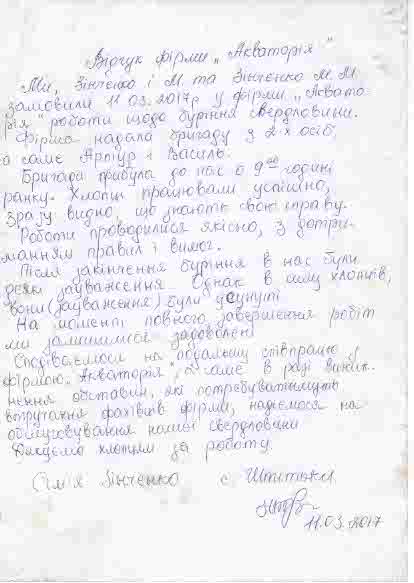 Відгук фірми „Акваторія"
Ми, Зінченко І М. та Зінченко М. М
замовили 11 03.2017р у фірми „Аквато
рія" роботи щодо буріння свердловини.
Фірма надала бригаду з 2-х осіб,
а саме Артур і Василь.
Бригада прибула до нас о 9⁰⁰ годині
ранку. Хлопці працювали успішно,
зразу видно, що знають свою справу.
Роботи проводилися якісно, з дотри-
манням правил і вимог.
Після закінчення буріння в нас були
деякі зауваження. Однак в силу хлопців,
вони (зауваження) були усунуті
На момент повного завершення робіт
ми залишилися задоволені
Сподіваємося на подальшу співпрацю з
фірмою „Акваторія", а саме в разі виник-
нення обставин, які потребуватимуть
втручання фахівців фірми, надіємося на
обслуговування нашої свердловини
Дякуємо хлопцям за роботу.
Сім'я Зінченко с.
11.03.2017